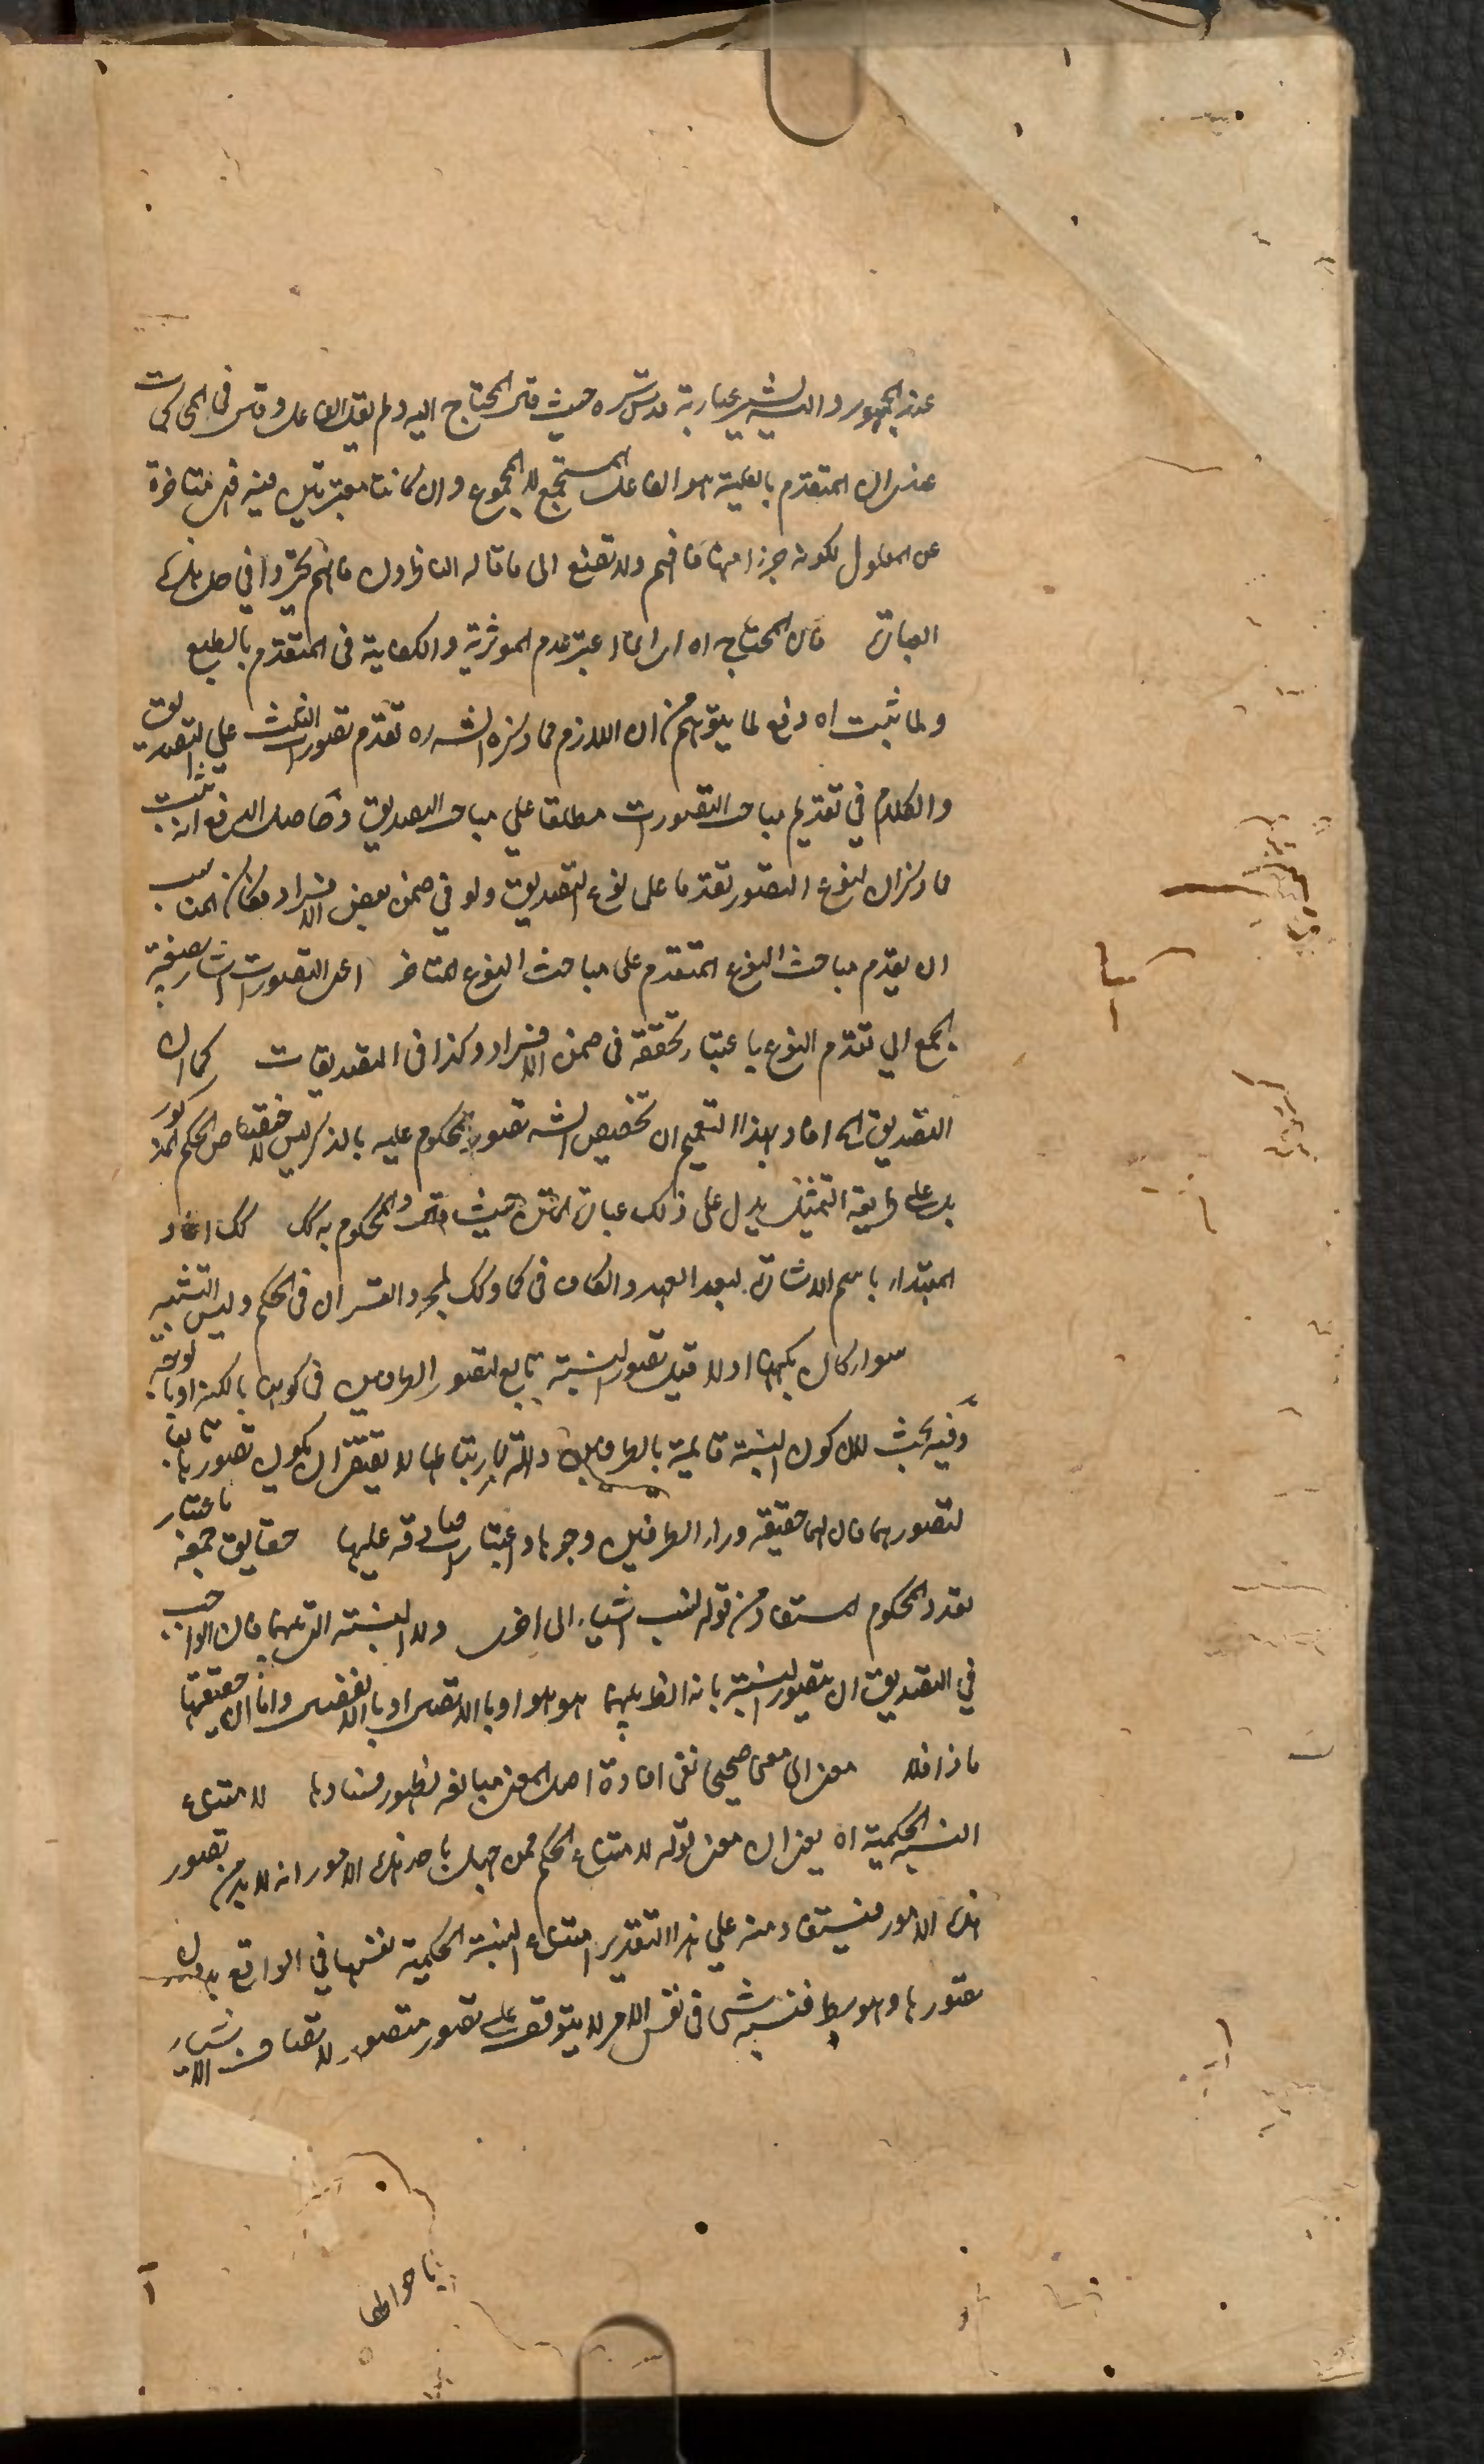 عند الجمهور واليه يشير عبارته قدس سره حيث قال المحتاج اليه ولم يقل الفاعل وقال في المحاكمات
عندى ان المتقدم بالعلية هو الفاعل المستجمع لا المجموع وان كانت معتبرتين فيه فهى متاخرة
عن المعلول لكونه جزءا منها فافهم ولا تصغ الى ما قاله الناظرون فانهم تحيروا في حل هذه
العبارة فان المحتاج اه اى لما اعتبر عدم الموثرية والكفاية فى المتقدم بالطبع
ولما ثبت اه دفع لما يتوهم من ان اللازم مما ذكره الش ره تقدم تصورات الثلث على التصديق
والكلام في تقديم مباحث التصورات مطلقا علي مباحث التصديق وحاصل الدفع انه ثبت
مما ذكر ان لنوع التصور تقدما على نوع التصديق ولو في ضمن بعض الافراد فكان المناسب
ان يقدم مباحث النوع المتقدم على مباحث النوع المتاخر اعنى التصورات اشار بصيغة
الجمع الي تقدم النوع باعتبار تحققه فى ضمن الافراد وكذا فى التصديقات كما ان
التصديق اه افاد بهذا التعميم ان تخصيص الش تصور المحكوم عليه بالذكر ليس لاختصاص الحكم المذكور
بل على طريقة التمثيل يدل على ذلك عبارة المتن حيث قال والمحكوم به كك كك اعاد
المبتداء باسم الاشارة لبعد العهد والكاف فى كما وكك لمجرد القران فى الحكم وليس التشبيه
سواء كان بكنهها اولا قيل تصور النسبة تابع لتصور الطرفين فى كونها بالكنه او بالوجه
وفيه بحث لان كون النسبة قايمة بالطرفين والة لارتباطهما لا يقتضى ان يكون تصورها تابعا
لتصورهما فان لها حقيقة وراء الطرفين ووجوها واعتبارات صادقة عليها حقايق جمعه باعتبار
تعدد المحكوم المستفاد من قوله لنسب اشياء الى اخرى ولا النسبة التامة فان الواجب
في التصديق ان يتصور النسبة بانه الطرفين هو هو او بالاتصال او بالانفصال واما ان حقيقتها
ماذا فلا معنى اى معنى صحيحا نفى افادة اصل المعنى مبالغه لظهور فسادها لامتناع
النسبة الحكمية اه يعنى ان معنى قوله لامتناع الحكم ممن جهل باحد هذه الامور انه لا بد من تصور
هذه الامور فيستفاد منه علي هذا التقدير امتناع النسبة الحكمية نفسها في الواقع بدون
تصورها وهو بط فنسبة شى فى نفس الامر لا يتوقف على تصور متصور لاتصاف الاشياء